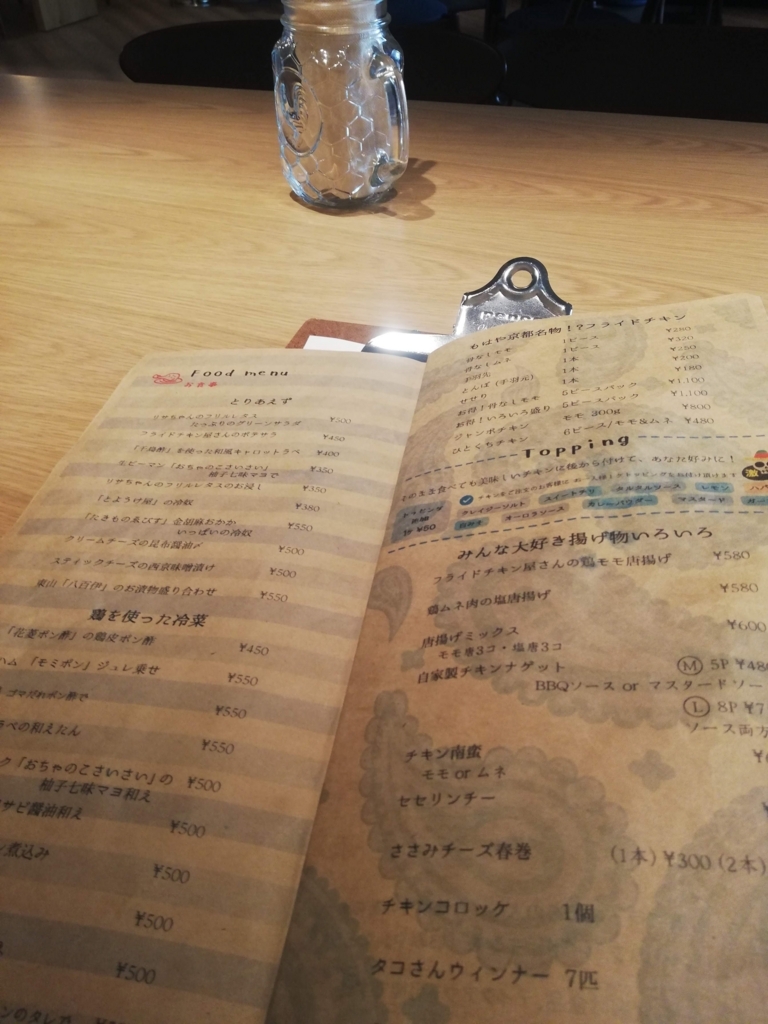 Food menu
お食事
とりあえず
リサちゃんのフリルレタス
たっぷりのグリーンサラダ ¥500
フライドチキン屋さんのポテサラ ¥450
を使った和風キャロットラペ ¥400
生ピーマン「おちゃのこさいさい」
柚子七味マヨで ¥350
リサちゃんのフリルレタスのお浸し ¥350
「とようけ屋」の冷奴 ¥380
「たきものゑびす」金胡麻おかか
いっぱいの冷奴 ¥550
クリームチーズの昆布醤油〆 ¥500
スティックチーズの西京味噌漬け ¥500
東山「八百伊」のお漬物盛り合わせ ¥550
鶏を使った冷菜
「花菱ポン酢」の鶏皮ポン酢 ¥450
ハム 「モミポン」ジュレ乗せ ¥550
ゴマだれポン酢で ¥550
の和えたん ¥550
ク「おちゃのこさいさい」の ¥500
柚子七味マヨ和え
サビ醤油和え ¥500
煮込み ¥500
¥500
¥500
ンのタレで
もはや京都名物!?フライドチキン
骨なしモモ 1ピース ¥280
骨なしムネ 1ピース ¥320
手羽先 1本 ¥250
とんぼ(手羽元) 1本 ¥200
せせり 1本 ¥180
お得!骨なしモモ 5ピースパック ¥1,100
お得!いろいろ盛り 5ピースパック ¥1,100
ジャンボチキン モモ 300g ¥800
ひとくちチキン 6ピース/モモ&ムネ ¥480
Topping
そのまま食べても美味しいチキンに後から付けて、あなた好みに!
トッピング
各種
¥80
クレイジーソルト スイートチリ タルタルソース レモン
オーロラソース カレーパウダー マスタード
みんな大好き揚げ物いろいろ
フライドチキン屋さんの鶏モモ唐揚げ ¥580
鶏ムネ肉の塩唐揚げ ¥580
唐揚げミックス ¥600
モモ唐3コ・塩唐3コ
自家製チキンナゲット Ⓜ 5P ¥48
BBQソース or マスタードソー
Ⓛ 8P ¥7
ソース両方
チキン南蛮
モモ or ムネ
セセリンチー
ささみチーズ春巻 (1本) ¥300 (2本)
チキンコロッケ 1個
タコさんウィンナー 7匹